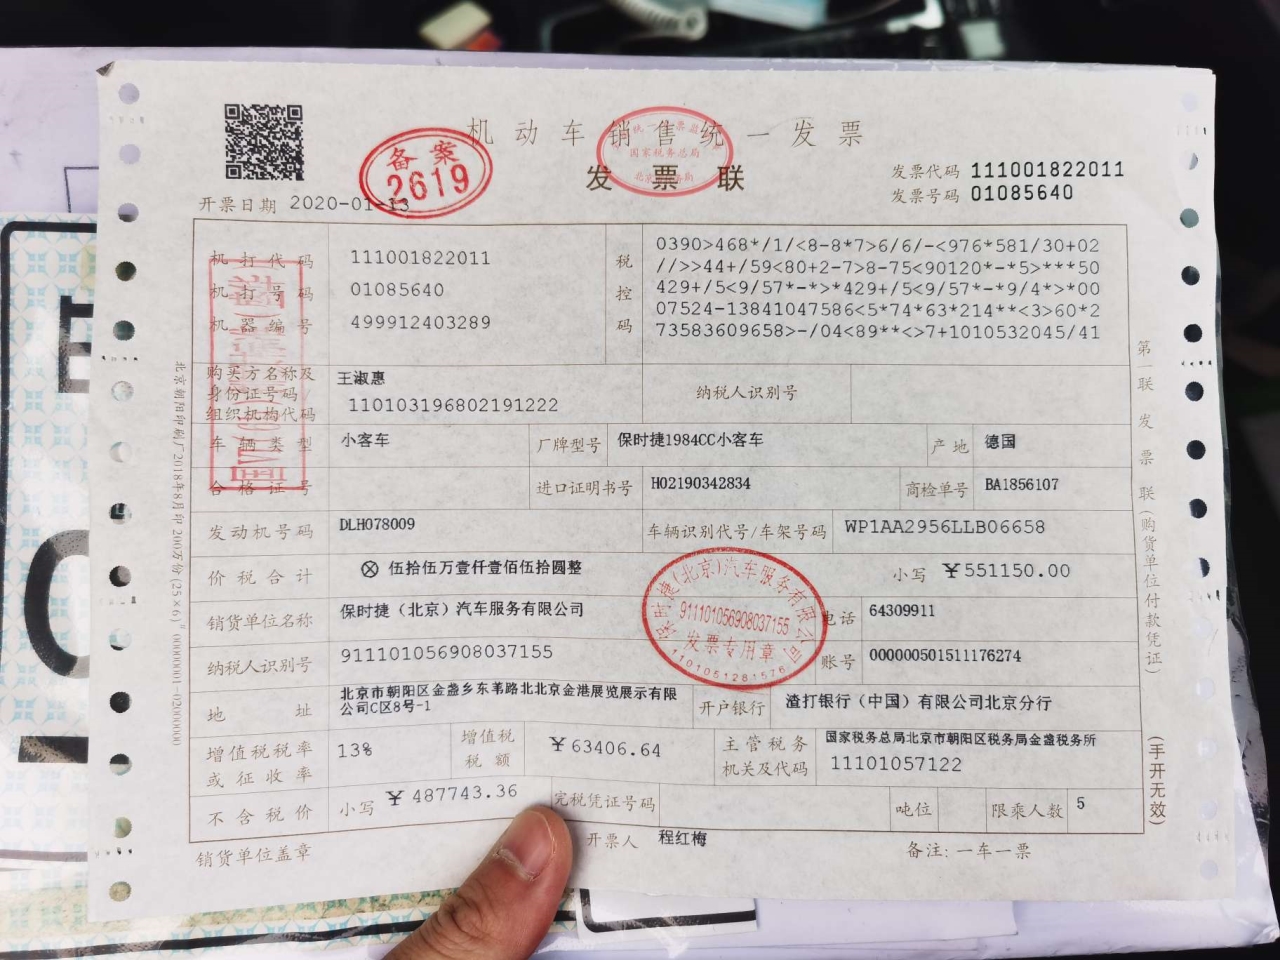 机动车销售统一发票
发票联
备案
2619
国家税务总局
发票代码 111001822011
发票号码 01085640
开票日期 2020-01-13
机打代码 111001822011
机打号码 01085640
机器编号 499912403289
税控码
0390>468*/1/<8-8*7>6/6/-<976*581/30+02
//>>44+/59<80+2-7>8-75<90120*-*5>***50
429+/5<9/57*-*>*429+/5<9/57*-*9/4*>*00
07524-13841047586<5*74*63*214**<3>60*2
73583609658>-/04<89**<>7+1010532045/41
购买方名称及身份证号码/组织机构代码 王淑惠
110103196802191222
纳税人识别号
车辆类型 小客车 厂牌型号 保时捷1984CC小客车 产地 德国
合格证号 进口证明书号 H02190342834 商检单号 BA1856107
发动机号码 DLH078009 车辆识别代号/车架号码 WP1AA2956LLB06658
价税合计 ⊗ 伍拾伍万壹仟壹佰伍拾圆整 小写 ¥551150.00
销货单位名称 保时捷（北京）汽车服务有限公司 电话 64309911
纳税人识别号 911101056908037155 账号 000000501511176274
地址 北京市朝阳区金盏乡东苇路北北京金港展览展示有限
公司C区8号-1
开户银行 渣打银行（中国）有限公司北京分行
增值税税率或征收率 13% 增值税税额 ¥63406.64 主管税务机关及代码 国家税务总局北京市朝阳区税务局金盏税务所
11101057122
不含税价 小写 ¥487743.36 完税凭证号码 吨位 限乘人数 5
销货单位盖章 开票人 程红梅 备注：一车一票
保时捷(北京)汽车服务有限公司
911101056908037155
发票专用章
1101051281576
第一联 发票联(购货单位付款凭证)
(手开无效)
北京朝阳印刷厂2018年8月印 200万份(25×6)" 00000001-02000000